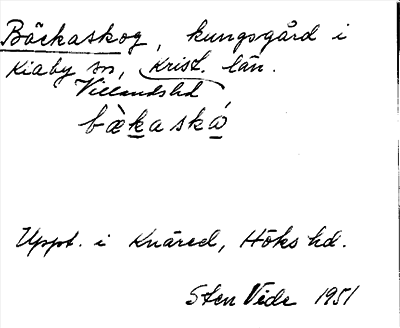 Bäckaskog, kungsgård i
Kiaby sn, Krist. län.
Villandshd
bàkaská
Uppt. i Knäred, Höks hd.
Sten Vide 1951